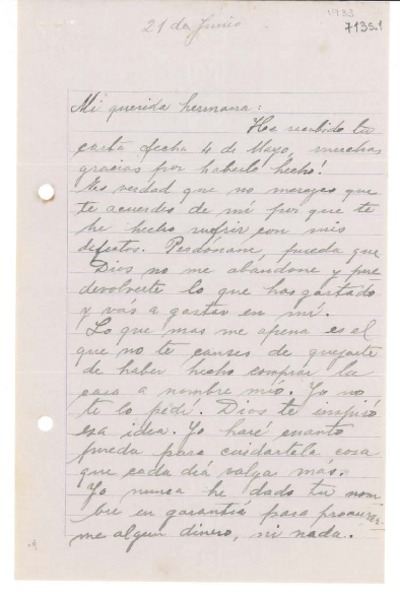 1933
7135.1
21 de Junio
Mi querida hermana:
He recibido tu
carta fecha 4 de Mayo, muchas
gracias por haberlo hecho!
Es verdad que no merezco que
te acuerdes de mí por que te
he hecho sufrir con mis
defectos. Perdóname, pueda que
Dios no me abandone y pue
devolverte lo que has gastado
y vás a gastar en mí.
Lo que mas me apena es el
que no te canses de quejarte
de haber hecho comprar la
casa a nombre mío. Yo no
te lo pedí. Dios te inspiró
esa idea. Yo haré cuanto
pueda para cuidártela cosa
que cada diá valga más.
Yo nunca he dado tu nom
bre en garantiá para procurar-
me algun dinero, ni nada.